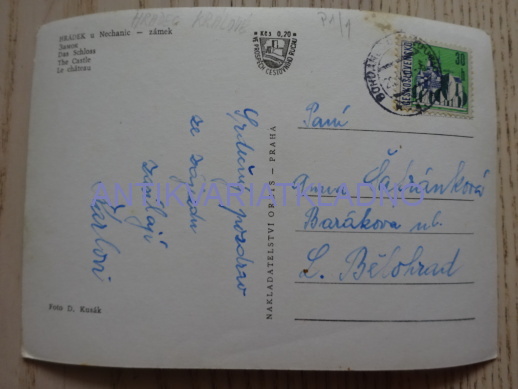 HRADEC KRÁLOVÉ
HRADEK u Nechanic — zámek
Замок
Das Schloss
The Castle
Le château
Kčs 0,20
VE PROSPĚCH CESTOVNÍHO RUCHU
30
ČESKOSLOVENSKO
Srdečný pozdrav
ze zájezdu
zasílají
Paní
Anna Šafránková
Barákova ul.
L. Bělohrad
NAKLADATELSTVÍ ORBIS — PRAHA
ANTIKVARIATKLADNO
Foto D. Kusák